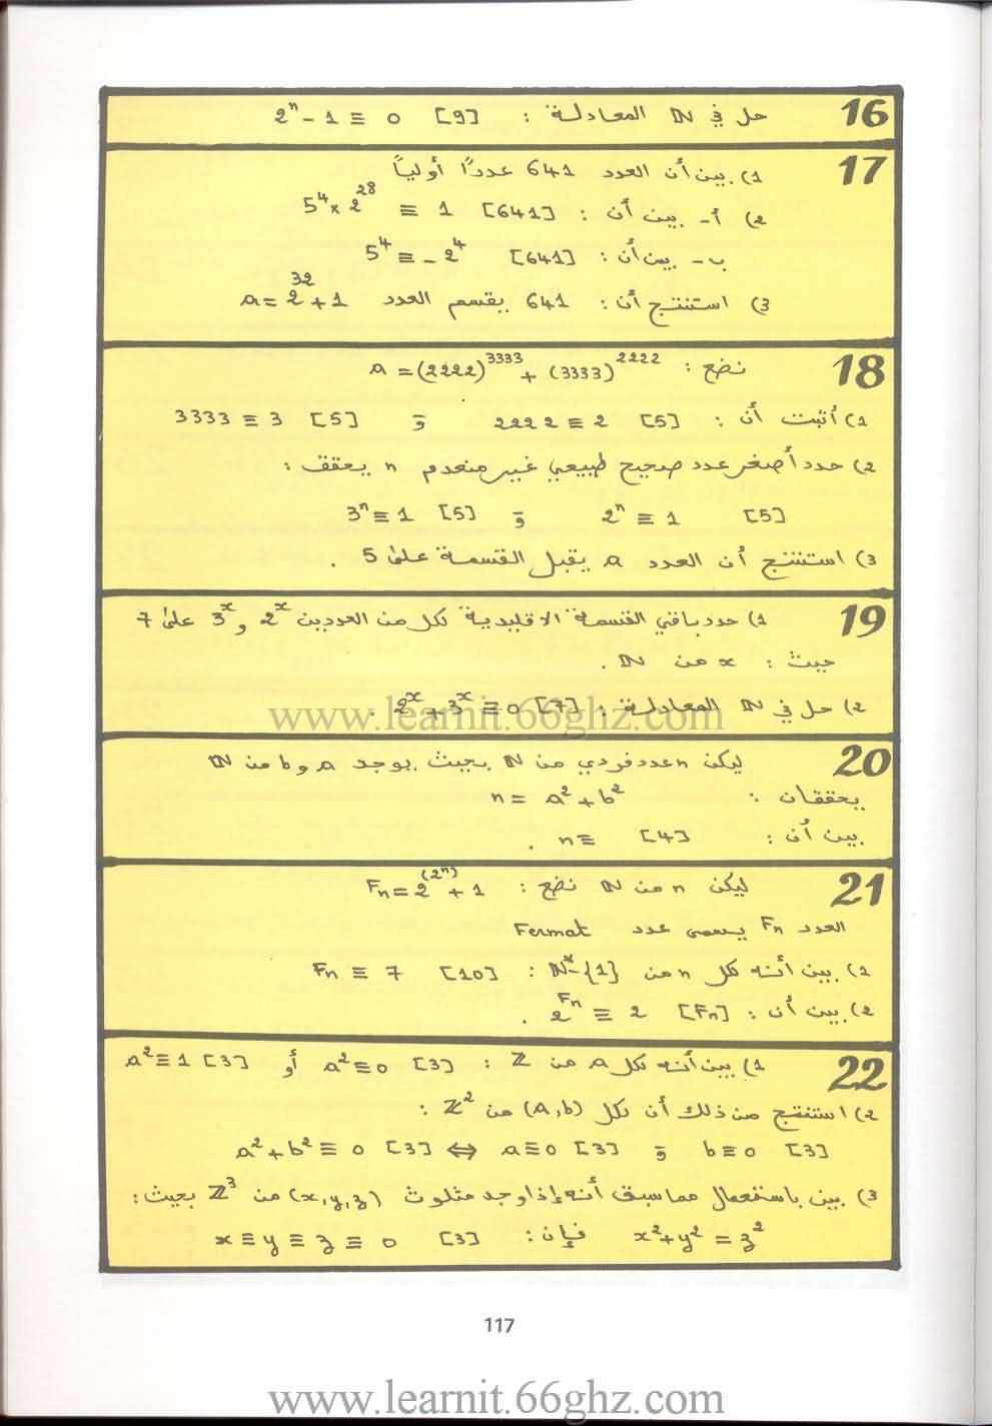 16 حل في ℕ المعادلة : 2ⁿ - 1 ≡ 0 [9]
17 1) بين أن العدد 641 عددًا أوليًا
2) أ- بين أن : 5⁴ × 2²⁸ ≡ 1 [641]
ب- بين أن : 5⁴ ≡ - 2⁴ [641]
3) استنتج أن : 641 يقسم العدد a = 2³² + 1
18 نضع : a = (2222)³³³³ + (3333)²²²²
1) أثبت أن : 2222 ≡ 2 [5] و 3333 ≡ 3 [5]
2) حدد أصغر عدد صحيح طبيعي غير منعدم n يحقق :
2ⁿ ≡ 1 [5] و 3ⁿ ≡ 1 [5]
3) استنتج أن العدد a يقبل القسمة على 5 .
19 1) حدد باقي القسمة الاقليدية لكل من العددين 2ˣ و 3ˣ على 7
حيث : x من ℕ .
2) حل في ℕ المعادلة : 2ˣ + 3ˣ ≡ 0 [7] .
www.learnit.66ghz.com
20 ليكن n عدد فردي من ℕ بحيث يوجد a و b من ℕ
يحققان : n = a² + b²
بين أن : n ≡ [4] .
21 ليكن n من ℕ نضع : Fₙ = 2^(2ⁿ) + 1
العدد Fₙ يسمى عدد Fermat
1) بين أنه لكل n من ℕ* - {1} : Fₙ ≡ 7 [10]
2) بين أن : 2^Fₙ ≡ 2 [Fₙ] .
22 1) بين أنه لكل a من ℤ : a² ≡ 0 [3] أو a² ≡ 1 [3]
2) استنتج من ذلك أن لكل (a,b) من ℤ² :
a² + b² ≡ 0 [3] ⇔ a ≡ 0 [3] و b ≡ 0 [3]
3) بين باستعمال ماسبق أنه إذا وجد مثلوث (x,y,z) من ℤ³ بحيث :
x² + y² = z² فإن : x ≡ y ≡ z ≡ 0 [3]
117
www.learnit.66ghz.com